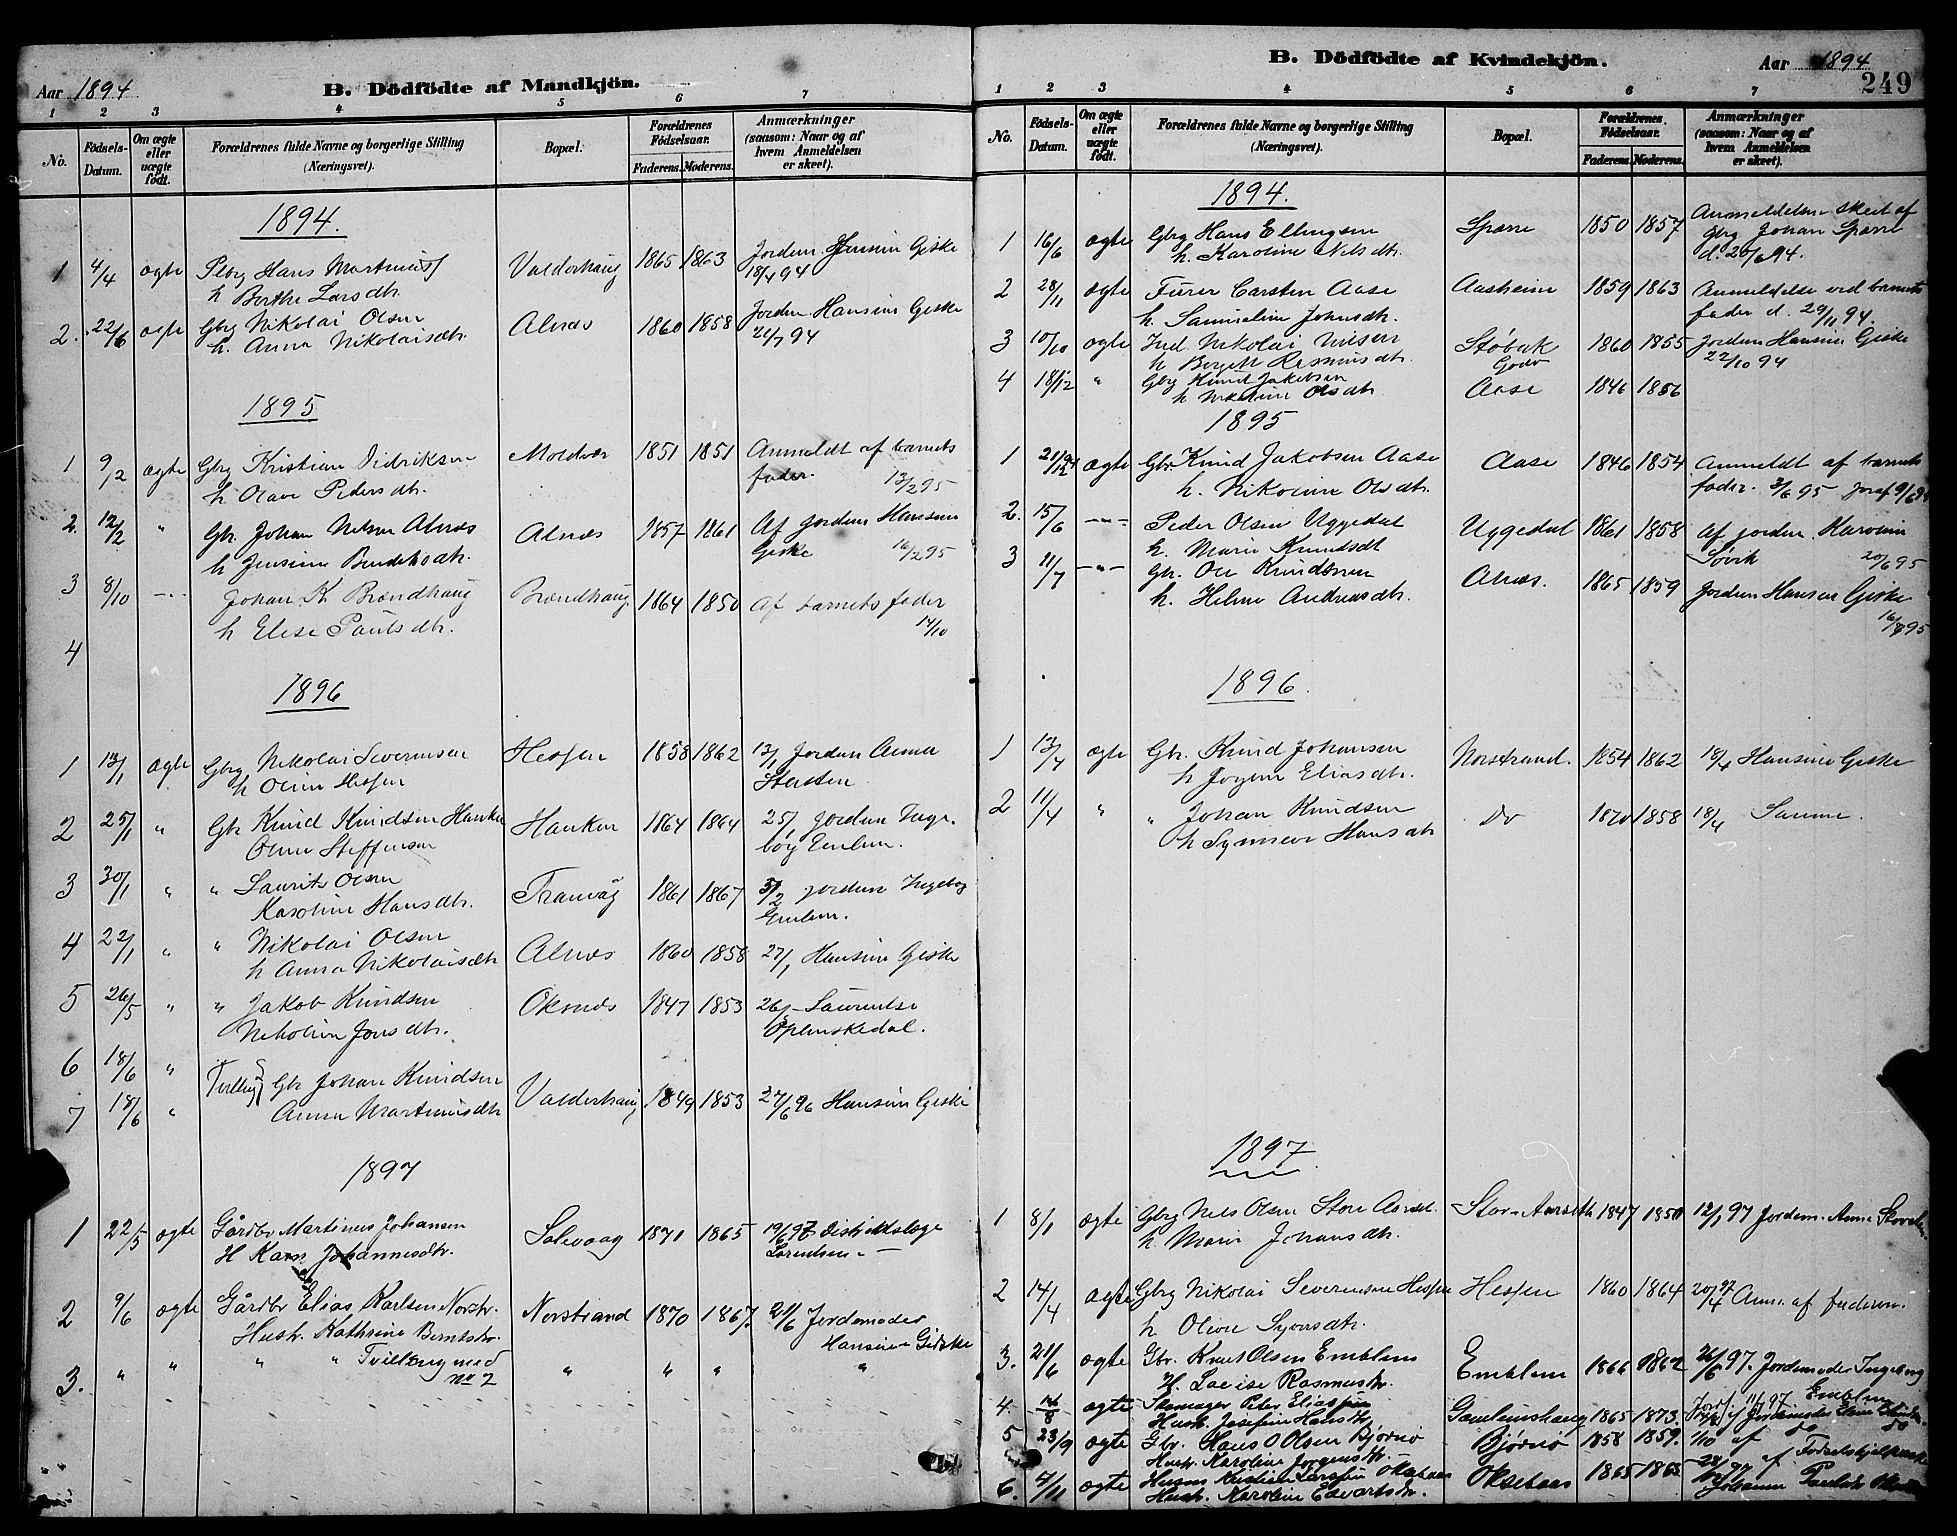 Aar 1894
B. Dödfödte af Mandkjön.
1 2 3 4 5 6 7
No.
Födsels-
Datum.
Om ægte
eller
uægte
födt.
Forældrenes fulde Navne og borgerlige Stilling
(Næringsvei).
Bopæl.
Forældrenes
Födselsaar.
Faderens. Moderens.
Anmærkninger
(saasom: Naar og af
hvem Anmeldelsen
er skeet).
1894.
1 4/4 ægte Hans Martinus Valderhaug 1865 1863 Jordem. Giske
h Berthe Larsdtr. 18/4 94
2. 22/6 ægte Gbrg Nikolai Olsen Alnæs 1860 1858 Jordem Hansine Giske
h. Anna Nikolaisdtr. 21/7 94
1895
1 9/2 ægte Gbrg Kristian Didriksen Moldvær 1851 1851 Anmeldt af barnets
h. Olave Pedersdtr. fader. 13/2 95
2. 12/2 " Gbr. Johan Nilsen Alnæs Alnæs 1857 1861 Af Jordem Hansine
h Jensine Giske 16/2 95
3 8/10 Johan K Brændhaug Brændhaug 1864 1850 Af barnets fader
h Elise Paulsdtr. 14/10
4
1896
1 13/1 ægte Gbrg Nikolai Severinsen Hessen 1858 1862 13/1 Jordem Anna
h Oline Hessen
2 25/1 " Gbr Knud Knudsen Hanken Hanken 1864 1864 25/1 Jordem Inge-
Oline Steffensen borg Emblem.
3 30/1 " " Laurits Olsen Tranvåg 1861 1867 Jordem Ingeborg
Karoline Hansdtr. Emblem.
4 22/1 " " Nikolai Olsen Alnæs 1860 1858 27/1 Hansine Giske
h Anna Nikolaisdtr
5 26/5 " " Jakob Knudsen Oksnæs 1847 1853 26/5 Laurentse
Nikoline Jonsdtr. Oplenskedal.
6 18/6 " Tvilling Gbr Johan Knudsen Valderhaug 1849 1853 27/6 96 Hansine Giske
7 18/6 " Anna Martinusdtr
1897
1 22/5 ægte Gårdbr Martinus Johansen Solevaag 1871 1865 19/6 97 Distriktslæge
H Karn Johannesdtr. Lorentsen
2 9/6 ægte Gårdbr Elias Karlsen Norstr. Norstrand 1870 1867. 21/6 Jordemoder
Hustr. Kathrine Berntsdtr. Hansine Gidske
3. " " " " Tvilling med " " " "
No 2
B. Dödfödte af Kvindekjön.
Aar 1894
249
1 2 3 4 5 6 7
No.
Födsels-
Datum.
Om ægte
eller
uægte
födt.
Forældrenes fulde Navne og borgerlige Stilling
(Næringsvei).
Bopæl.
Forældrenes
Födselsaar.
Faderens. Moderens.
Anmærkninger
(saasom: Naar og af
hvem Anmeldelsen
er skeet).
1894.
1 16/6 ægte Gbrg Hans Ellingsen 1850 1857 Anmeldelsen skeet af
h. Karoline Nilsdtr. Gbrg Johan
d. 20/6 94.
2 28/11 ægte Furer Carsten Aase Aasheim 1859 1863 Anmeldelse ved barnets
h. Samueline Johnsdtr. fader d. 29/11 94.
3 10/10 ægte Ind Nikolai Nilsen Støbak 1860 1855 Jordem Hansine Giske
h Bergitte Rasmusdtr. Godø 22/10 94
4 18/12 " Gbrg Knud Jakobsen Aase 1846 1856
h Nikoline Olsdtr
1895
1 21/12 94 ægte Gbr. Knud Jakobsen Aase Aase 1846 1854 Anmeldt af barnets
h. Nikoline Olsdtr. fader. 3/6 95
2. 15/6 -"- Peder Olsen Uggedal Uggedal 1861 1858 Af Jordem. Karoline
h. Marie Knudsdtr Løvik 20/6 95
3 11/7 -"- Gbr. Ole Knudsen Alnæs. 1865 1859 Jordem Hansine Giske
h. Heline Andreasdtr.
1896.
1 13/4 ægte Gbr. Knud Johansen Norstrand. 1854 1862 18/4 Hansine Giske
h Jogine Eliasdtr.
2 11/4 " " Johan Knudsen Do 1870 1858 18/4 Samme.
h Synneve Hansdtr
1897.
1 8/1 ægte Gbrg Nils Olsen Store Aarset. Store-Aarseth 1847 1850 12/1 97 Jordem. Anne
h. Marie Johansdtr.
2 14/4 ægte Gbrg Nikolai Severinsen Hessen Hessen 1860 1864 20/4 97 Anm. af faderen.
h Oline Syversdtr.
3. 21/6 ægte Gbr. Knut Olsen Emblem Emblem 1866 1862 26/6 97. Jordemoder Ingeborg
H. Lovise Rasmusdtr. Emblem
4. 14/8 ægte Skomager Peter Eliassen Gamlemshaug 1865 1873. Jordemoder
Hustr. Josefine Hansdtr
5 23/9 ægte Gbr. Hans O Olsen Bjørnø Bjørnø 1858 1859. 1/10 af do do
Hustr. Karoline Jørgensdtr.
6. 4/11 ægte Husm Kristian Larssen Oksebaas Oksebaas 1865 1865 af Fødselshjelperske
Hustr. Karoline Edvartsdtr. Johanne